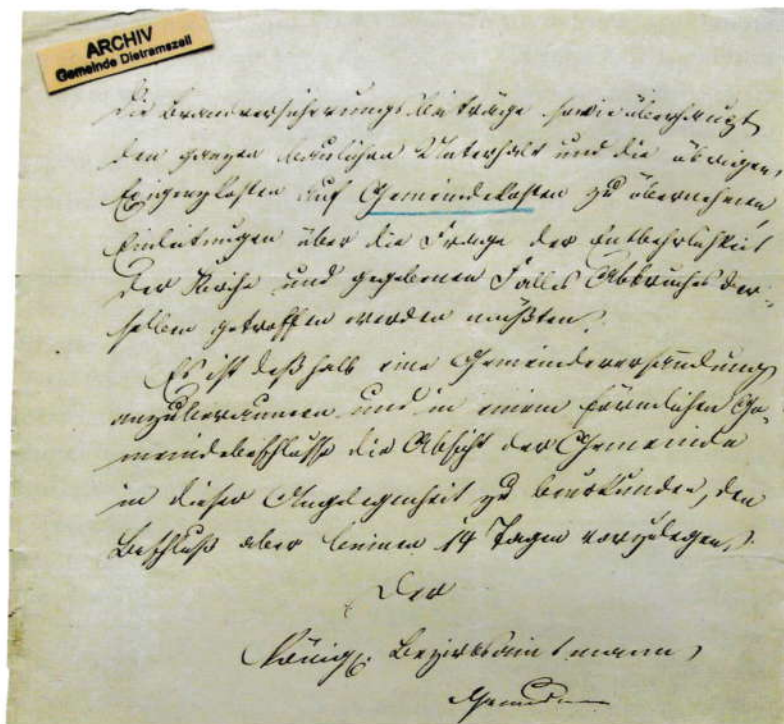 ARCHIV
Gemeinde Dietramszell
die Brandversicherungsbeiträge sowie überhaupt
den ganzen baulichen Unterhalt und die übrigen
auf Gemeindekosten zu übernehmen,
Einleitungen über die Frage der Entbehrlichkeit
der Kirche und gegebenen Falles Abbruches der-
selben getroffen werden müßten.
Es ist deßhalb eine Gemeindeversammlung
anzuberaumen und in einem förmlichen Ge-
meindebeschlusse die Absicht der Gemeinde
in dieser Angelegenheit zu beurkunden, den
Beschluß aber binnen 14 Tagen vorzulegen.
Der
Königl. Bezirksamtmann,